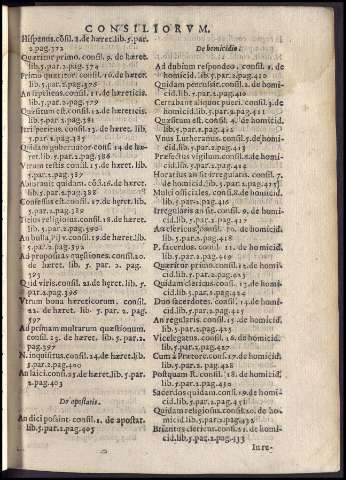 CONSILIORVM.
Hispanus.cōsil.8.de hæret.lib.5.par.
2.pag.372
Quæritur primo.consil.9. de hæret.
lib.5.par.2.pag.374
Primo quæritur.consil.10.de hæret.
lib.5.par.2.pag.376
An sapiens.consil.11.de hæret.
lib.5.par.2.pag.379
Quæsitum est.consil.12.de hæreticis.
lib.5.par.2.pag.381
consil.13.de hæret. lib.
5.par.2.pag.385
Quidam gubernator.consil.14.de hæ-
ret.lib.5.par.2.pag.386
Vtrum testis.consil.15.de hæret. lib.
5.par.2.pag.387
Abiurauit quidam. cōs.16.de hæret.
lib.5.par.2.pag.388
Confessus est.consil.17.de hæret.lib.
5.par.2.pag.389
Titius religiosus.consil.18.de hæret.
lib.5.par.2.pag.390
An bulla Pij v.consil.19.de hæret.lib.
5.par.2.pag.392
Ad propositas quæstiones.consil.20.
de hæret. lib. 5. par. 2. pag.
395
Quid viris.consil.21.de hæret. lib.5.
par.2.pag.396
Vtrum bona hæreticorum. consil.
22. de hæret. lib. 5. par. 2. pag.
397
Ad primam multarum quæstionum.
consil. 23. de hæret.lib. 5.par.2.
pag.398
N. inquisitus consil.24.de hæret.lib.
5.par.2.pag.400
An laici.consil.25.de hæret.lib.5.par.
2.pag.403
De apostatis.
An dici possint. consil.1. de apostat.
lib.5.par.2.pag.405
De homicidio:
Ad dubium respondeo. consil.1. de
homicid. lib.5.par.2.pag.410
Quidam percussit.consil.2.de homi-
cid.lib.5.par.2.pag.410
Certabant aliquot pueri.consil.3.de
homicid.lib.5.par.2.pag.411
Quæsitum est.consil. 4. de homicid.
lib.5.par.2.pag.412
Vnus Lutheranus.consil.5.de homi-
cid.lib.5.par.2.pag.413
Præfectus vigilum.consil.6.de homi-
cid.lib.5.par.2.pag.414
Horatius an sit irregularis. consil.7.
de homicid.lib.5.par.2.pag.415
Multi officiales.consil.8.de homicid.
lib.5.par.2.pag.416
Irregularis an sit. consil.9. de homi-
cid.lib.5.par.2.pag.417
An clericus. consil. 10. de homicid.
lib.5.par.2.pag.418
P. sacerdos. consil. 11. de homicid.
lib.5.par.2.pag.421
Quæritur primo.consil.12.de homi-
cid.lib.5.par.2.pag.423
Quidam clericus.consil.13.de homi-
cid.lib.5.par.2.pag.424
Duo sacerdotes. consil.14.de homi-
cid.lib.5.par.2.pag.425
An regularis. consil.15. de homicid.
lib.5.par.2.pag.425
Vicelegatus. consil.16.de homicid.
lib.5.par.2.pag.427
Cum à Prætore.consil.17.de homicid.
lib.5.par.2.pag.430
Postquam R. consil. 18.de homicid.
lib.5.par.2.pag.430
Sacerdos quidam.consil.19.de homi-
cid.lib.5.par.2.pag.431
Quidam religiosus.consil.20.de ho-
micid.lib.5.par.2.pag.432
clericus.consil.21.de homi-
cid.lib.5.par.2.pag.433
In re-